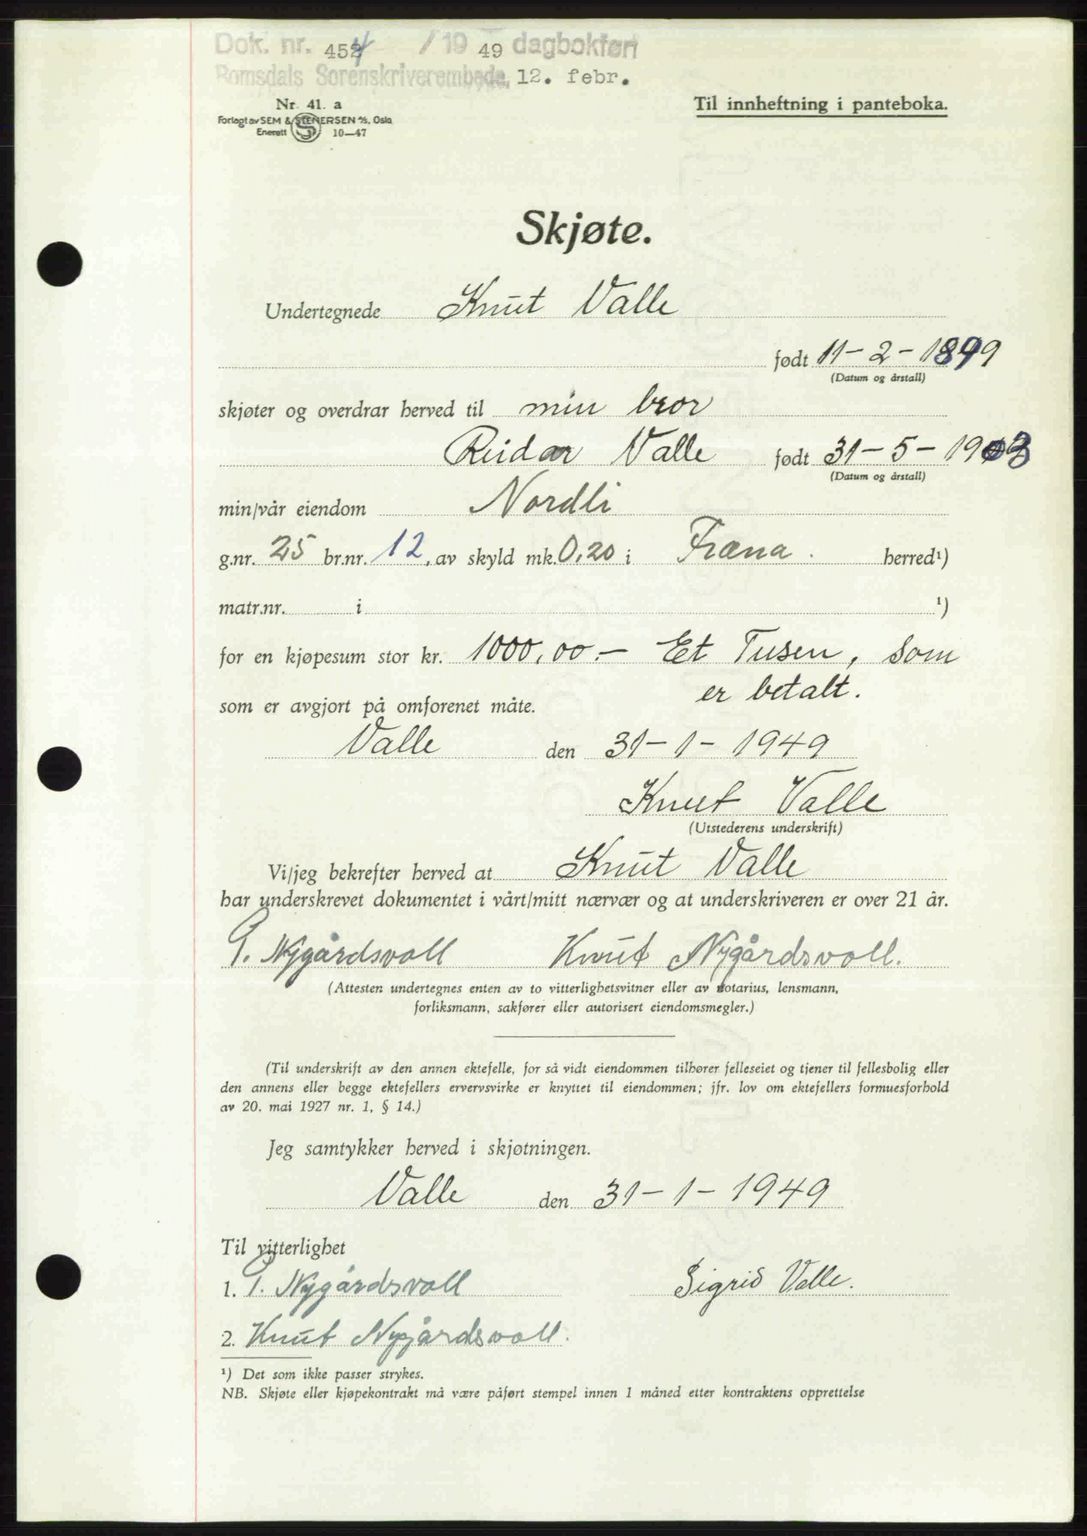 Dok. nr. 4524 / 19 49 dagbokført
Romsdals Sorenskriverembede, 12. febr.
Nr. 41. a
Forlagt av SEM & STENERSEN A/S, Oslo
Enerett S 10—47
Til innheftning i panteboka.
Skjøte.
Undertegnede Knut Valle
født 11-2-1899
(Datum og årstall)
skjøter og overdrar herved til min bror
Reidar Valle født 31-5-1903
(Datum og årstall)
min/vår eiendom Nordli
g.nr. 25 br.nr. 12, av skyld mk. 0,20 i Fræna. herred¹)
matr.nr. i ¹)
for en kjøpesum stor kr. 1000,00.- Et Tusen, som
er betalt.
som er avgjort på omforenet måte.
Valle den 31-1-1949
Knut Valle
(Utstederens underskrift)
Vi/jeg bekrefter herved at Knut Valle
har underskrevet dokumentet i vårt/mitt nærvær og at underskriveren er over 21 år.
P. Nygårdsvoll Knut Nygårdsvoll.
(Attesten undertegnes enten av to vitterlighetsvitner eller av notarius, lensmann,
forliksmann, sakfører eller autorisert eiendomsmegler.)
(Til underskrift av den annen ektefelle, for så vidt eiendommen tilhører felleseiet og tjener til fellesbolig eller
den annens eller begge ektefellers ervervsvirke er knyttet til eiendommen; jfr. lov om ektefellers formuesforhold
av 20. mai 1927 nr. 1, § 14.)
Jeg samtykker herved i skjøtningen.
Valle den 31-1-1949
Til vitterlighet
1. P. Nygårdsvoll Sigrid Valle.
2. Knut Nygårdsvoll.
¹) Det som ikke passer strykes.
NB. Skjøte eller kjøpekontrakt må være påført stempel innen 1 måned etter kontraktens opprettelse